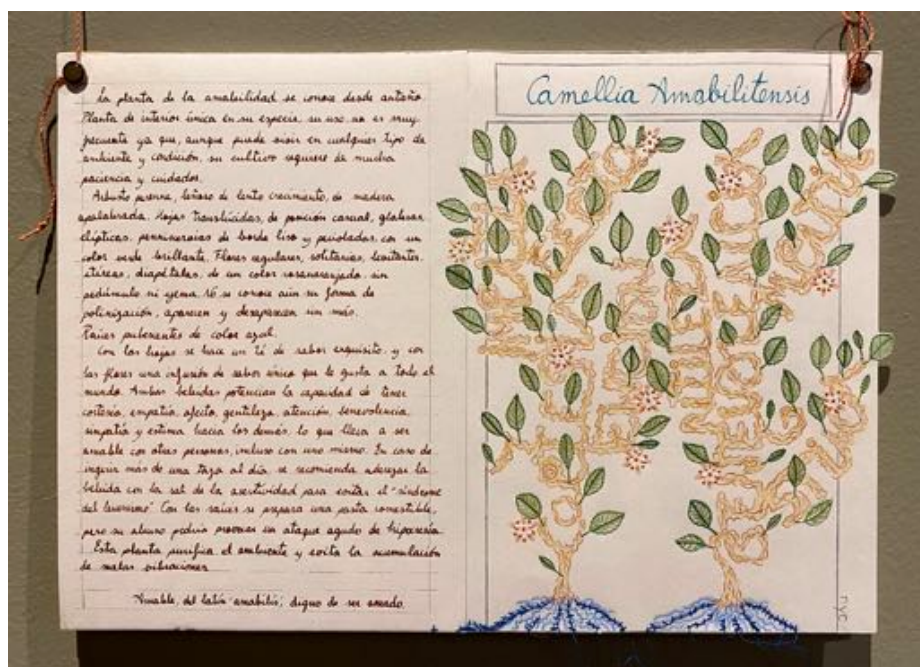 La planta de la amabilidad se conoce desde antaño.
Planta de interior única en su especie, su uso no es muy
frecuente ya que, aunque puede vivir en cualquier tipo de
ambiente y condición, su cultivo requiere de mucha
paciencia y cuidados.
Arbusto perenne, leñoso de lento crecimiento, de madera
apalabrada. Hojas translúcidas, de posición casual, globosas
elípticas, penninervias de borde liso y pecioladas, con un
color verde brillante. Flores regulares, solitarias, levitantes,
etéreas, diapétalas, de un color rosanaranjado sin
pedúnculo ni yema. No se conoce aún su forma de
polinización, aparecen y desaparecen sin más.
Raíces pubescentes de color azul.
Con las hojas se hace un té de sabor exquisito, y con
las flores una infusión de sabor único que le gusta a todo el
mundo. Ambas bebidas potencian la capacidad de tener
cortesía, empatía, afecto, gentileza, atención, benevolencia,
simpatía y estima hacia los demás, lo que lleva a ser
amable con otras personas, incluso con uno mismo. En caso de
ingerir más de una taza al día, se recomienda aderezar la
bebida con la sal de la asertividad para evitar el "síndrome
del". Con las raíces se prepara una pasta comestible,
pero su abuso podría provocar un ataque agudo de hipocresía.
Esta planta purifica el ambiente y evita la acumulación
de malas vibraciones.
Amable, del latín "amabilis", digno de ser amado.
Camellia Amabilitensis
nyc